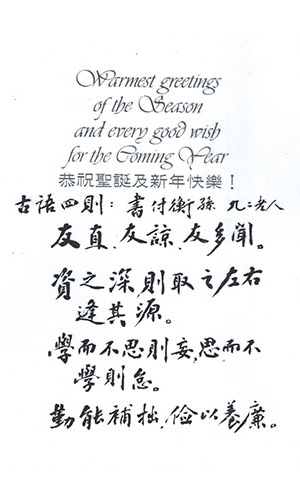 Warmest greetings
of the Season
and every good wish
for the Coming Year
恭祝聖誕及新年快樂！
古語四則：書付衡孫 九二老人
友直、友諒、友多聞。
資之深，則取之左右
逢其源。
學而不思則妄，思而不
學則怠。
勤能補拙，儉以養廉。